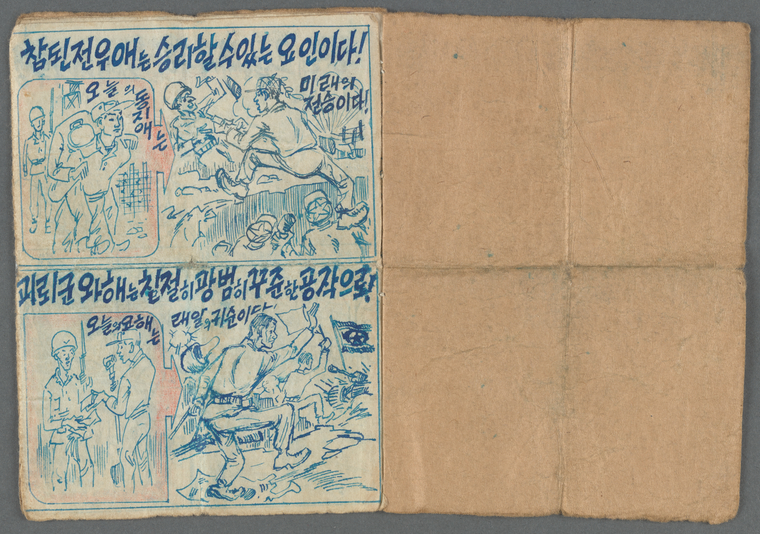 참된전우애는 승리할수있는 요인이다!
오늘의 동지애는
미래의
전승이다!
괴뢰군 와해는 친절히 광범히 꾸준한 공작으로!
오늘의 와해는
래일의 귀순이다